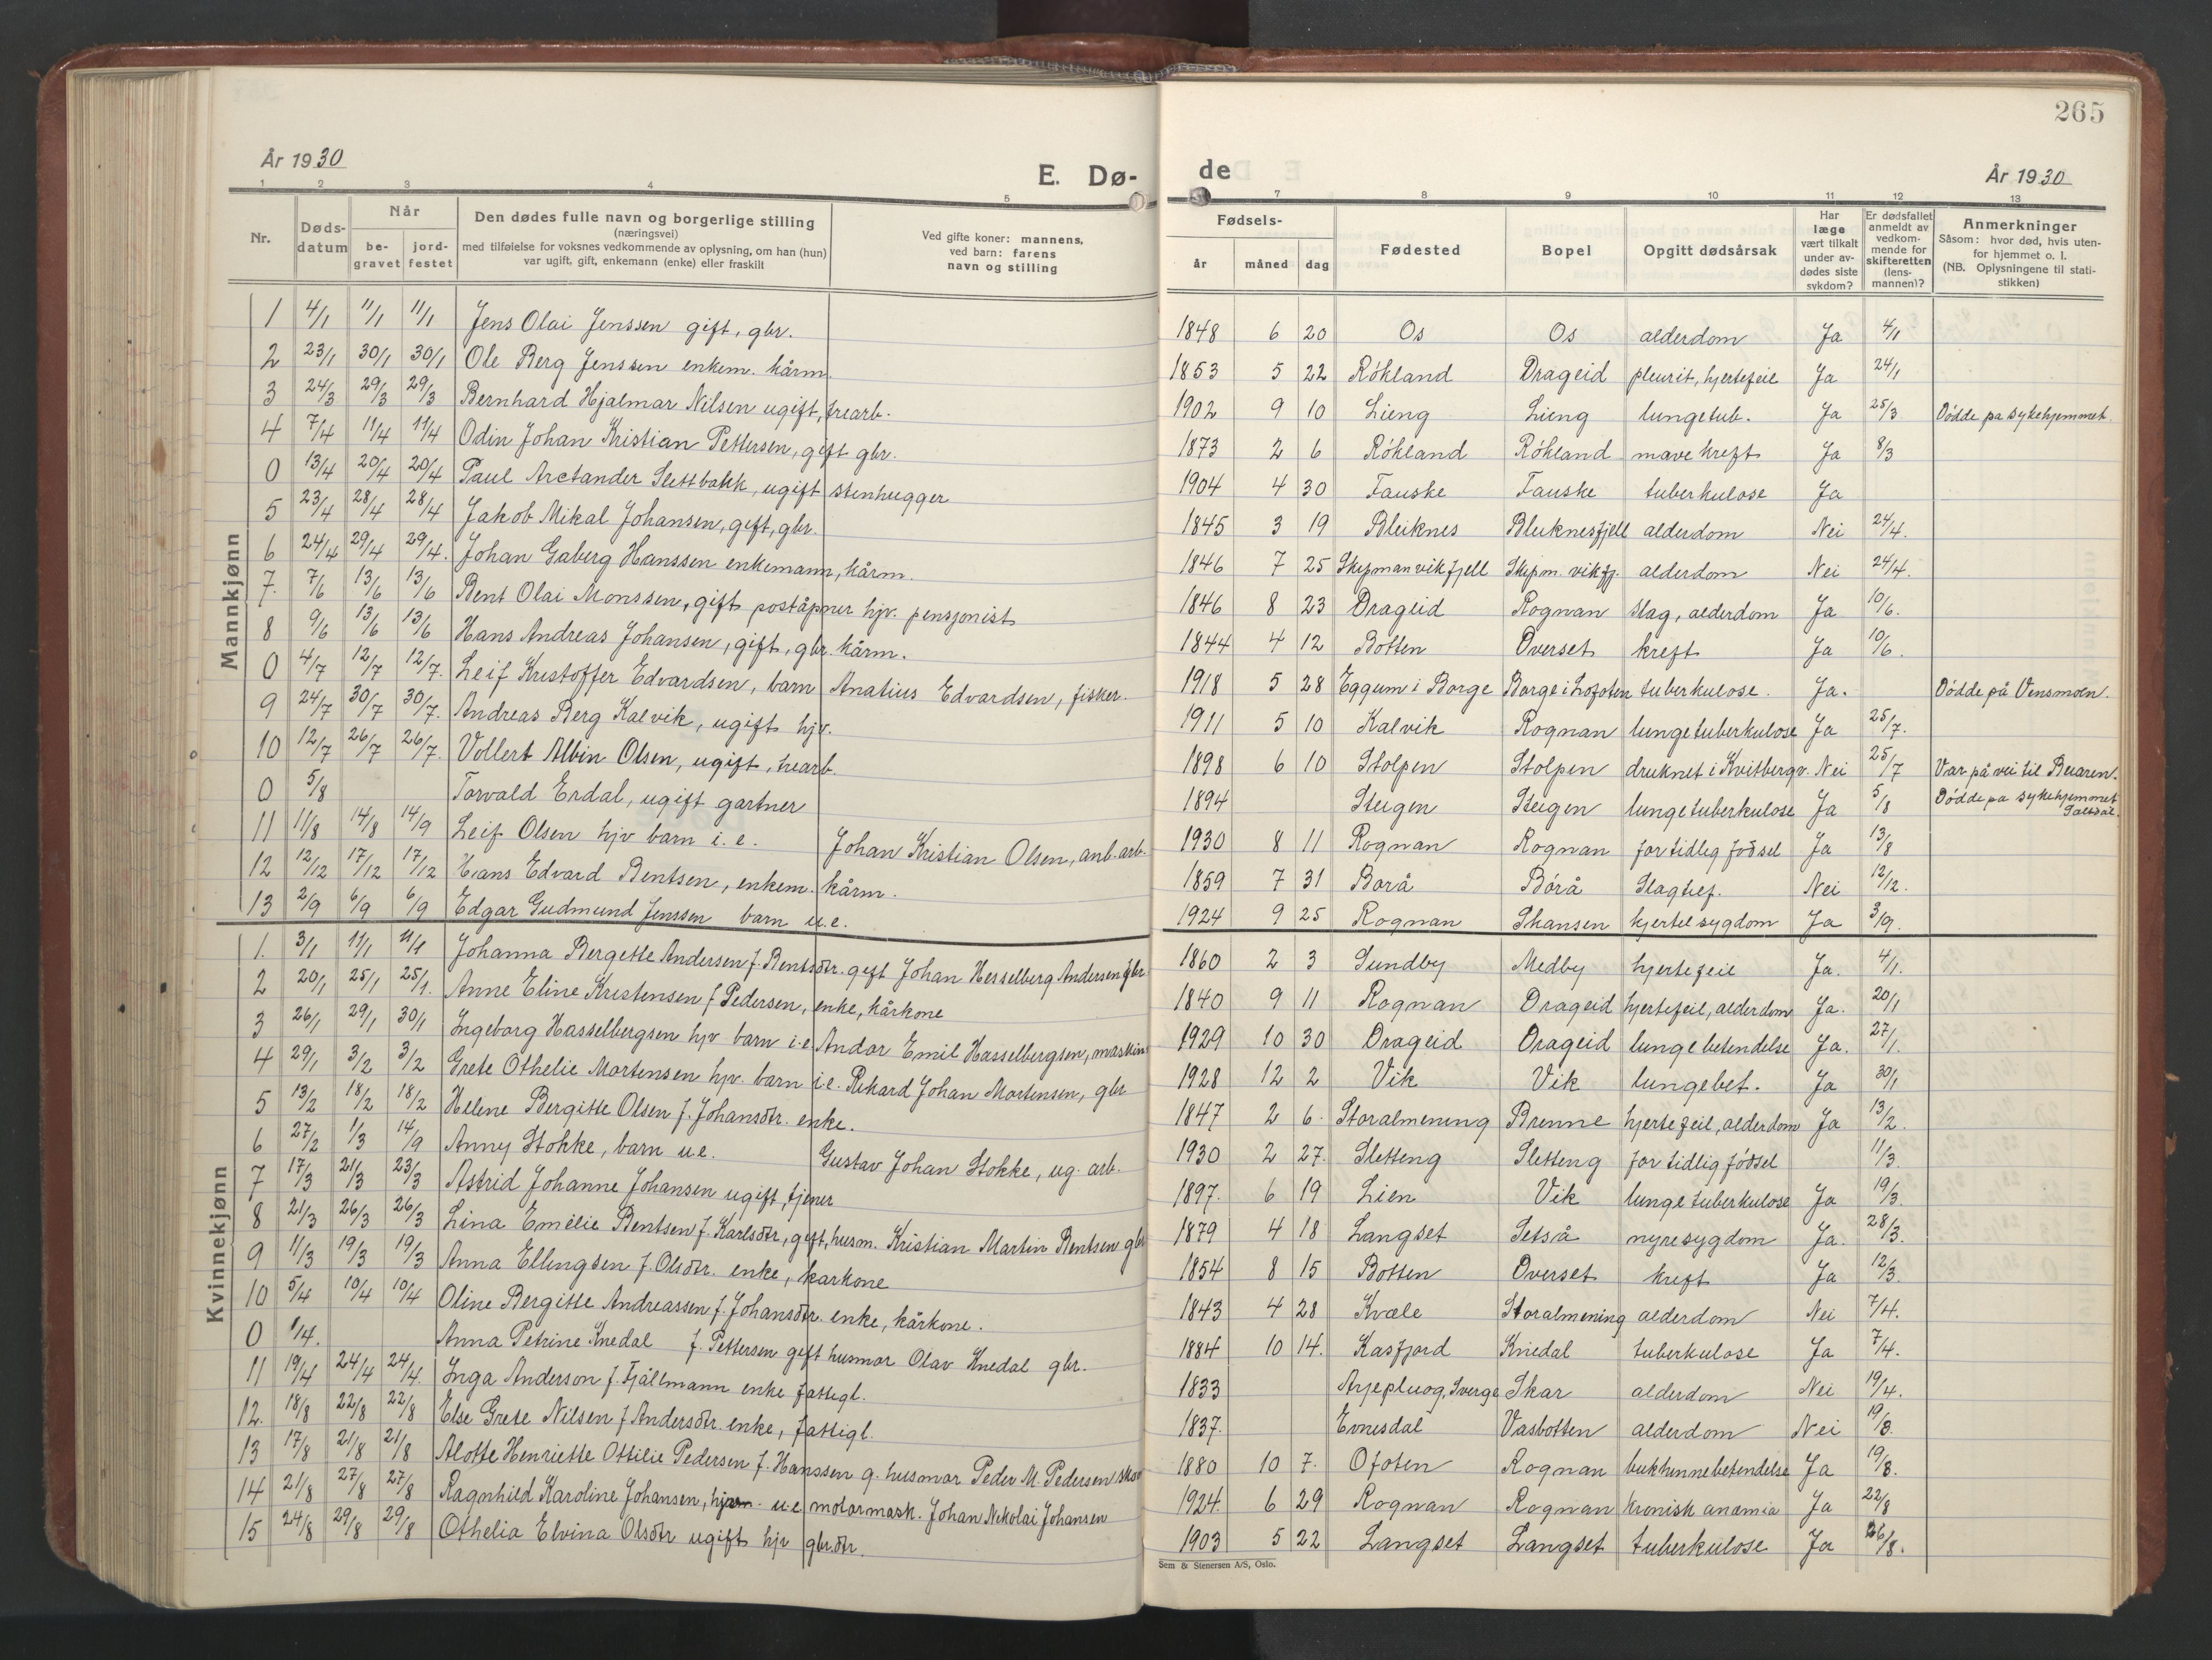 265
År 1930
E. Dø-
de
År 1930
1 2 3 4 5 7 8 9 10 11 12 13
Nr. Døds-datum Når be-gravet jord-festet Den dødes fulle navn og borgerlige stilling (næringsvei) med tilføielse for voksnes vedkommende av oplysning, om han (hun) var ugift, gift, enkemann (enke) eller fraskilt Ved gifte koner: mannens, ved barn: farens navn og stilling Fødsels- år måned dag Fødested Bopel Opgitt dødsårsak Har læge vært tilkalt under av-dødes siste sykdom? Er dødsfallet anmeldt av vedkom-mende for skifteretten (lens-mannen)? Anmerkninger Såsom: hvor død, hvis uten-for hjemmet o. l. (NB. Oplysningene til stati-stikken)
Mannkjønn
1 4/1 11/1 11/1 Jens Olai Jenssen gift, gbr. 1848 6 20 Os Os alderdom Ja 4/1
2 23/1 30/1 30/1 Ole Berg Jenssen enkem. kårm. 1853 5 22 Røkland Drageid pleurit, hjertefeil Ja 24/1
3 24/3 29/3 29/3 Bernhard Hjalmar Nilsen ugift, frearb. 1902 9 10 Lieng Lieng lungetub. Ja 25/3 Dødde på sykehjemmet.
4 7/4 11/4 11/4 Odin Johan Kristian Pettersen, gift gbr. 1873 2 6 Røkland Røkland mavekreft Ja 8/3
0 13/4 20/4 20/4 Paul Arctander Slettbakk, ugift stenhugger 1904 4 30 Fauske Fauske tuberkulose Ja
5 23/4 28/4 28/4 Jakob Mikal Johansen, gift, gbr. 1845 3 19 Bleiknes Bleiknesfjell alderdom Nei 24/4.
6 24/4 29/4 29/4. Johan Gaberg Hanssen enkemann, kårm. 1846 7 25 Skjpmanvikfjell Skjpm. vikfj. alderdom Nei 24/4.
7. 7/6 13/6 13/6 Bent Olai Monssen, gift poståpner hjv. pensjonist 1846 8 23 Drageid Rognan slag, alderdom Ja 10/6.
8 9/6 13/6 13/6 Hans Andreas Johansen, gift, gbr. kårm. 1844 4 12 Botten Överset kreft Ja 10/6.
0 4/7 12/7 12/7. Leif Kristoffer Edvardsen, barn Anatius Edvardsen, fisker. 1918 5 28 Eggum i Borge Borge i Lofoten tuberkulose. Ja. Dødde på Vensmoen.
9 24/7 30/7 30/7. Andreas Berg Kalvik, ugift hjv. 1911 5 10 Kalvik Rognan lungetuberkulose Ja 25/7.
10 12/7 26/7 26/7. Vollert Albin Olsen, ugift, frearb. 1898 6 10 Stolpen Stolpen druknet i Kvitbergv. Nei 25/7 Var på vei til Beiaren.
0 5/8 Torvald Erdal, ugift gartner 1894 Steigen Steigen lungetuberkulose Ja 5/8 Dødde på sykehjemmet Saltdal.
11 11/8 14/8 14/9 Leif Olsen hjv barn i. e. Johan Kristian Olsen, anl. arb. 1930 8 11 Rognan Rognan for tidlig fødsel Ja 13/8
12 12/12 17/12 17/12 Hans Edvard Bentsen, enkem. kårm. 1859 7 31 Borå Børå Slagtilf. Nei 12/12.
13 2/9 6/9 6/9 Edgar Gudmund Jenssen barn u.e. 1924 9 25 Rognan Skansen kjertelsygdom Ja 3/9.
Kvinnekjønn
1. 3/1 11/1 11/1 Johanna Bergette Andersen f. Bentsdtr. gift Johan Hesselberg Andersen gbr. 1860 2 3 Sundby Medby hjertefeil Ja. 4/1.
2 20/1 25/1 25/1. Anne Eline Kristensen f Pedersen, enke, kårkone 1840 9 11 Rognan Drageid hjertefeil, alderdom Ja. 20/1
3 26/1 29/1 30/1 Ingeborg Hasselbergsen hjv barn i.e Andor Emil Hasselbergsen, maskin 1929 10 30 Drageid Drageid lungebetendelse Ja. 27/1.
4 29/1 3/2 3/2 Grete Othelie Mortensen hjv. barn i.e. Rikard Johan Mortensen, gbr 1928 12 2 Vik Vik lungebet. Ja 30/1
5 13/2 18/2 18/2 Helene Bergitte Olsen f. Johansdtr. enke. 1847 2 6. Storalmening Brenne hjertefeil, alderdom Ja 13/2.
6 27/2 1/3 14/9 Anny Stokke, barn u.e. Gustav Johan Stokke, ug. arb. 1930 2 27. Sletteng Sletteng for tidlig fødsel 11/3.
7 17/3 21/3 23/3 Astrid Johanne Johansen ugift, tjener 1897. 6 19 Lien Vik lungetuberkulose Ja 19/3.
8 21/3 26/3 26/3 Lina Emelie Bentsen f. Karlsdtr, gift, husm. Kristian Martin Bentsen gbr 1879 4 18 Langset Setså nyresygdom Ja. 28/3.
9 11/3 19/3 19/3 Anna Ellingsen f. Olsdtr. enke, karkone 1854 8 15 Botten Överset kreft Ja 12/3.
10 5/4 10/4 10/4 Oline Bergitte Andreassen f. Johansdtr. enke, kårkone. 1843 4 28 Kvæle Storalmening alderdom Nei 7/4.
0 1/4. Anna Petrine Knedal f. Pettersen gift husmor Olav Knedal gbr. 1884 10 14. Kasfjord Knedal tuberkulose Ja 7/4.
11 19/4 24/4 24/4. Inga Anderson f. Fjällmann enke fattigl. 1833 Arjepluog, Sverge Skar alderdom Nei 19/4.
12. 18/8 22/8 22/8 Else Grete Nilsen f Andersdtr. enke, fattigl. 1837. Evnesdal Vasbotten alderdom Nei 19/8.
13 17/8 21/8 21/8 Alotte Henriette Ottilie Pedersen f. Hanssen g. husmor Peder M. Pedersen 1880 10 7. Ofoten Rognan bukhinnebetendelse Ja 19/8.
14 21/8 27/8 27/8 Ragnhild Karoline Johansen, u.e motormask. Johan Nikolai Johansen 1924. 6 29 Rognan Rognan kronisk anæmia Ja 22/8
15 24/8 29/8 29/8 Othelia Elvina Olsdtr ugift hjv gbr.dtr. 1903 5 22 Langset Langset tuberkulose Ja 26/8.
Sem & Stenersen A/S, Oslo.